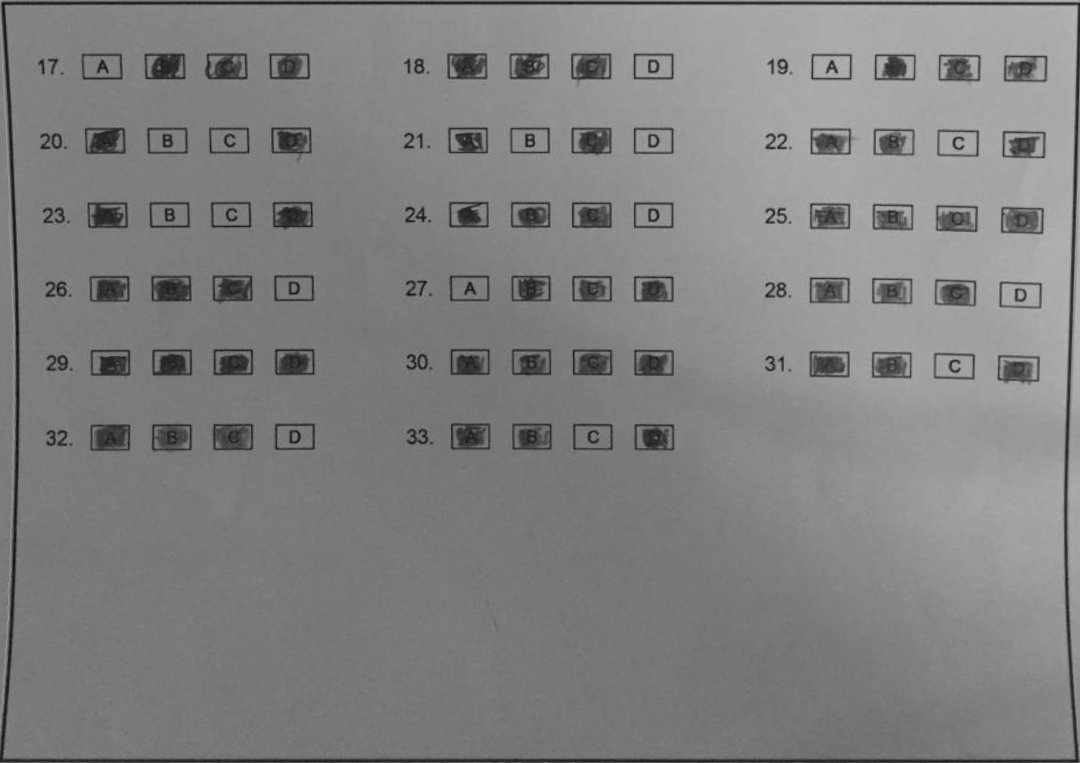 17. A B C D 18. A B C D 19. A C D
20. A B C D 21. A B C D 22. A B C D
23. A B C D 24. A B C D 25. A B C D
26. A B C D 27. A B C D 28. A B C D
29. A B C D 30. A B C D 31. A B C D
32. A B C D 33. A B C D